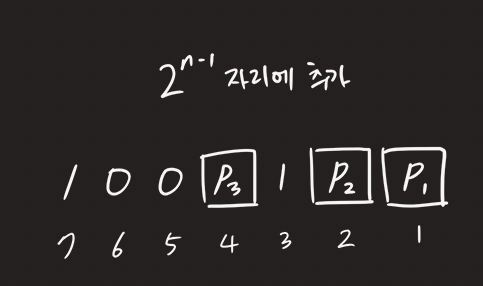 2^{n-1} 자리에 추가
1 0 0 P₃ 1 P₂ P₁
7 6 5 4 3 2 1